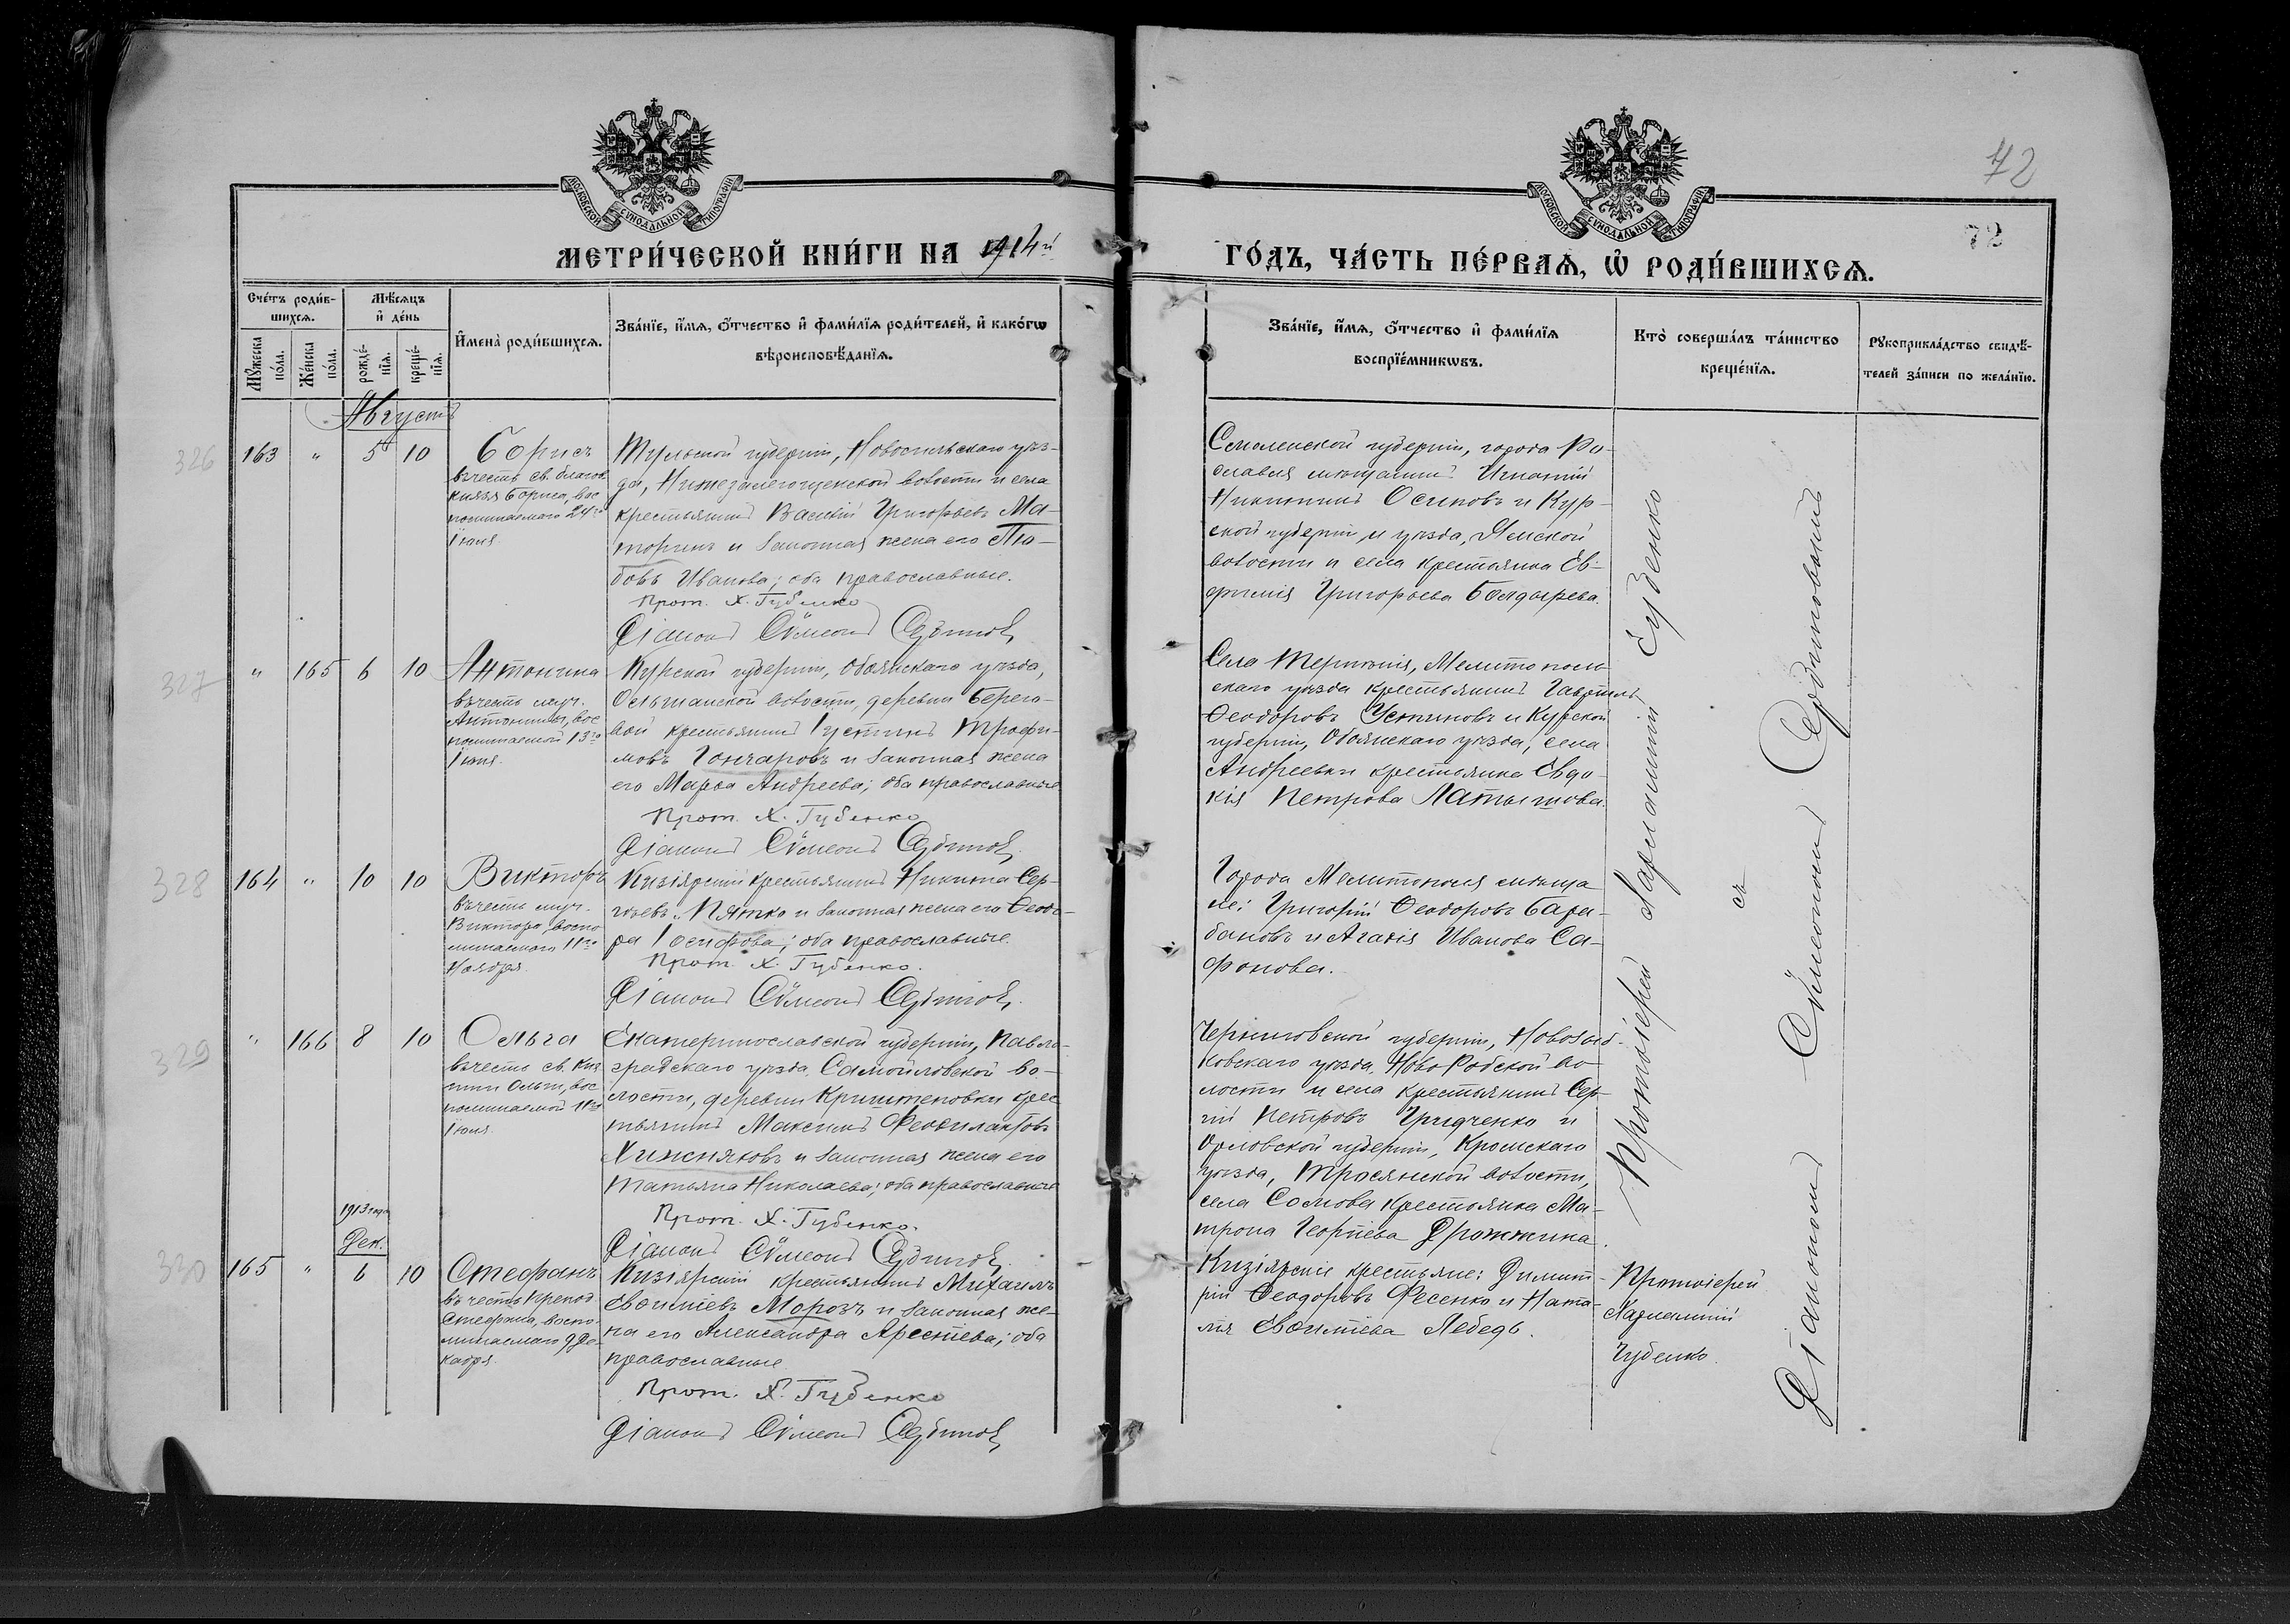 72
72
МОСКОВСКОЙ СѴНОДАЛЬНОЙ ТИПОГРАФІИ
МОСКОВСКОЙ СѴНОДАЛЬНОЙ ТИПОГРАФІИ
МЕТРИ́ЧЕСКОЙ КНИ́ГИ НА 1914й
ГО́ДЪ, ЧА́СТЬ ПЕ́РВАѦ, Ѡ҆ РОДИ́ВШИХСѦ.
Сче́тъ роди́в-
шихсѧ.
Мꙋ́жеска по́ла.
Же́нска по́ла.
Мѣ́сѧцъ
и҆ де́нь
рожде́-
нїѧ.
креще́-
нїѧ.
И҆мена̀ роди́вшихсѧ.
Зва́нїе, и҆́мѧ, ѻ҆́тчество и҆ фами́лїѧ роди́телей, и҆ како́гѡ
вѣроисповѣ́данїѧ.
Зва́нїе, и҆́мѧ, ѻ҆́тчество и҆ фами́лїѧ
воспрїе́мникѡвъ.
Кто̀ соверша́лъ та́инство
креще́нїѧ.
Рꙋкоприкла́дство свидѣ́-
телей за́писи по жела́нїю.
Августъ
326
163 " 5 10
Борисъ
въ честь св. благов.
князя Бориса, вос
поминаемаго 24го
Іюля.
Тульской губерніи, Новосильскаго уѣз-
да, Нижезалегощенской волости и села
крестьянинъ Василій Григорьевъ Ма-
торинъ и законная жена его Лю-
бовь Иванова; оба православные.
Прот. Х. Губенко
Діаконъ Сѵмеонъ
Смоленской губерніи, города Ро-
славля мѣщанинъ Игнатій
Никитинъ Осиповъ и Кур-
ской губерніи и уѣзда, Ямской
волости и села крестьянка Ев-
фимія Григорьева Болдырева.
327
" 165 6 10
Антонина
въ честь муч.
Антонины, вос
поминаемой 13го
Іюня.
Курской губерніи, Обоянскаго уѣзда,
Ольшанской волости, деревни Берего-
вой крестьянинъ Іустинъ Трофи-
мовъ Гончаровъ и законная жена
его Марѳа Андреева; оба православные
Прот. Х. Губенко
Діаконъ Сѵмеонъ
Села Терпѣнія, Мелитополь
скаго уѣзда крестьянинъ Гавріилъ
Ѳеодоровъ Устиновъ и Курской
губерніи, Обоянскаго уѣзда, села
Андреевки крестьянка Евдо-
кія Петрова Латышова.
328
164 " 10 10
Викторъ
въ честь муч.
Виктора, воспо
минаемаго 11го
Ноября.
Кизіярскій крестьянинъ Никита Сер-
гѣевъ Пятко и законная жена его Ѳеодо-
ра Іосифова; оба православные.
Прот. Х. Губенко.
Діаконъ Сѵмеонъ
Города Мелитополя мѣща
не: Григорій Ѳеодоровъ Бара-
бановъ и Агаѳія Иванова Са-
фонова.
329
" 166 8 10
Ольга
въ честь св. кня
гини Ольги, вос
поминаемой 11го
Іюля.
Екатеринославской губерніи, Павло-
градскаго уѣзда, Самойловской во-
лости, деревни Криштеповки крес
тьянинъ Максимъ Феофилактовъ
Хижняковъ и законная жена его
Татьяна Николаева; оба православные
Прот. Х. Губенко.
Діаконъ Сѵмеонъ
Черниговской губерніи, Новозыб-
ковскаго уѣзда, Ново Робской во
лости и села крестьянинъ Сер-
гій Петровъ Гридченко и
Орловской губерніи, Кромскаго
уѣзда, Тросянской волости,
села Сомова крестьянка Ма-
трона Георгіева Дрожжина.
Протоіерей Харлампій Губенко
съ
Діакономъ Сѵмеономъ
1913 года
Дек.
330
165 " 6 10
Стефанъ
въ честь препод.
Стефана, воспо
минаемаго 9 Де-
кабря.
Кизіярскій крестьянинъ Михаилъ
Евѳиміевъ Морозъ и законная же-
на его Александра Арестіева; оба
православные.
Прот. Х. Губенко
Діаконъ Сѵмеонъ
Кизіярскіе крестьяне: Димит-
рій Ѳеодоровъ Фесенко и Ната-
лія Евѳиміева Лебедь.
Протоіерей
Харлампій
Губенко.